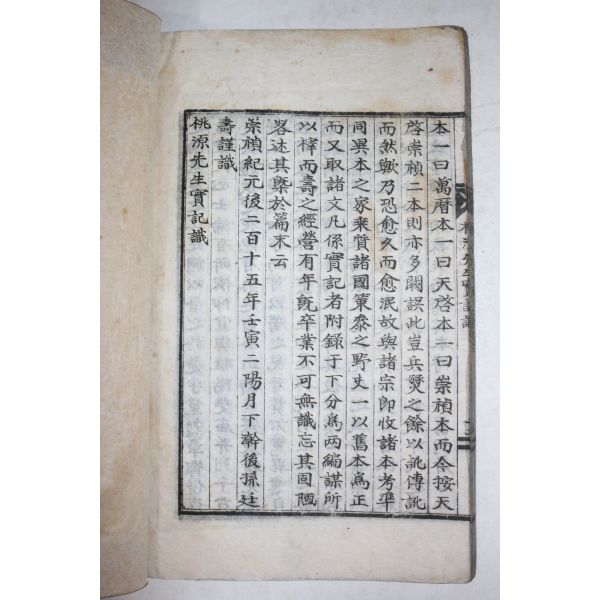 本一曰萬曆本一曰天啓本一曰崇禎本而今按天
啓崇禎二本則亦多闕誤此豈兵燹之餘以訛傳訛
而然歟乃恐愈久而愈泯故與諸宗卽收諸本考準
同異本之家乘質諸國策叅之野史一以舊本爲正
而又取諸文凡係實記者附錄于下分爲兩編謀所
以梓而壽之經營有年旣卒業不可無識忘其固陋
畧述其槩於篇末云
崇禎紀元後二百十五年壬寅二陽月下澣後孫廷
壽謹識
桃源先生實記識